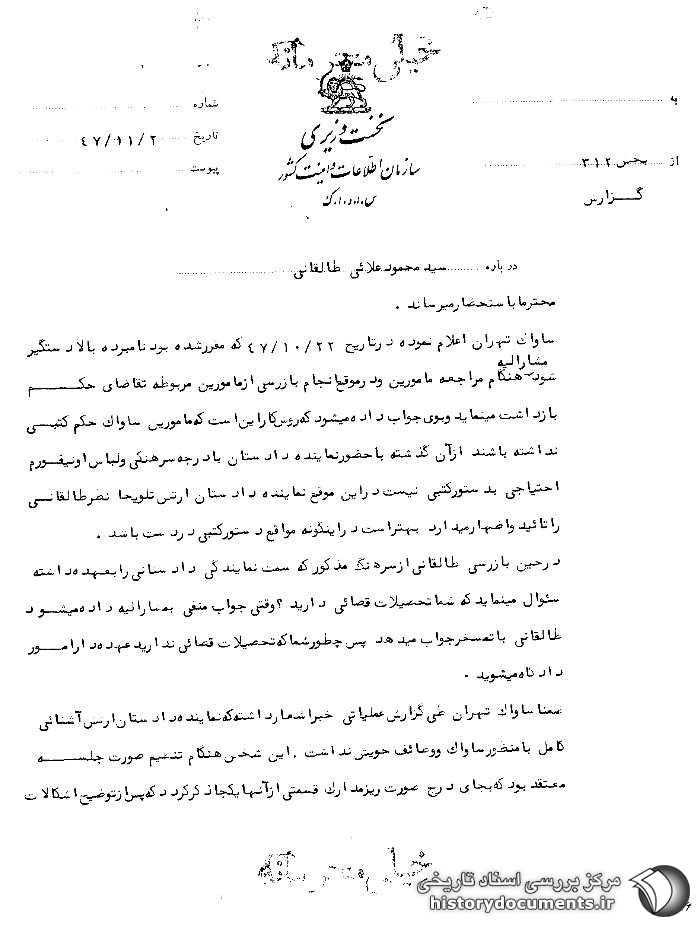 خیلی محرمانه
نخست وزیری
سازمان اطلاعات و امنیت کشور
س.ا.و.ا.ک
به
از بخش ۳۱۲
گزارش
شماره
تاریخ ۴۷/۱۱/۲۰
پیوست
درباره سید محمود علائی طالقانی
محترما باستحضار میرساند .
ساواک تهران اعلام نموده در تاریخ ۴۷/۱۰/۲۲ که مقرر شده بود نامبرده بالا دستگیر
مشارالیه
شود هنگام مراجعه مامورین ودر موقع انجام بازرسی از مامورین مربوطه تقاضای حکم
بازداشت مینماید وبوی جواب داده میشود که روش کار این است که مامورین ساواک حکم کتبی
نداشته باشند ازآن گذشته باحضور نماینده دادستان بادرجه سرهنگی ولباس اونیفورم
احتیاجی بدستورکتبی نیست دراین موقع نماینده دادستان ارتش تلویحا نظر طالقانی
را تائید واظهار میدارد بهتر است دراینگونه مواقع دستورکتبی در دست باشد .
درحین بازرسی طالقانی ازسرهنگ مذکور که سمت نمایندگی دادستانی را بعهده داشته
سئوال مینماید که شما تحصیلات قضائی دارید ؟ وقتی جواب منفی بمشارالیه داده میشود
طالقانی با تمسخر جواب میدهد پس چطور شما که تحصیلات قضائی ندارید عهده دار امور
دادگاه میشوید .
ضمنا ساواک تهران طی گزارش عملیاتی خبر اشعار داشته که نماینده دادستان ارتش آشنائی
کامل با منظور ساواک ووظائف خویش نداشت . این شخص هنگام تنظیم صورت جلسه
معتقد بود که بجای درج صورت ریز مدارک قسمتی ازآنها یکجا ذکر گردد که پس از توضیح اشکالات
خیلی محرمانه
مرکز بررسی اسناد تاریخی
historydocuments.ir